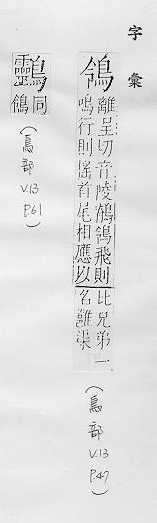 字彙
鴒
離呈切音陵鶺鴒飛則
鳴行則搖首尾相應以
比兄弟一
名雝渠
(鳥部 V.13 P.47)
同
鴒
(鳥部 V.13 P.61)